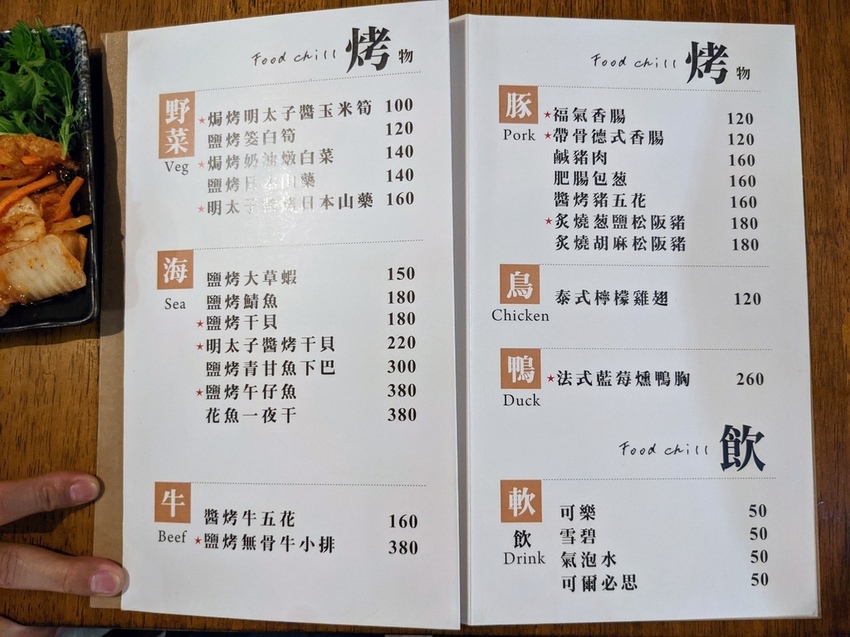 Food chill 烤 物
野菜 Veg
★焗烤明太子醬玉米筍 100
鹽烤筊白筍 120
★焗烤奶油燉白菜 140
鹽烤日本山藥 140
★明太子醬烤日本山藥 160
海 Sea
鹽烤大草蝦 150
鹽烤鯖魚 180
★鹽烤干貝 180
★明太子醬烤干貝 220
鹽烤青甘魚下巴 300
★鹽烤午仔魚 380
花魚一夜干 380
牛 Beef
醬烤牛五花 160
★鹽烤無骨牛小排 380
Food chill 烤 物
豚 Pork
★福氣香腸 120
★帶骨德式香腸 120
鹹豬肉 160
肥腸包葱 160
醬烤豬五花 160
★炙燒葱鹽松阪豬 180
炙燒胡麻松阪豬 180
鳥 Chicken
泰式檸檬雞翅 120
鴨 Duck
★法式藍莓燻鴨胸 260
Food chill 飲
軟飲 Drink
可樂 50
雪碧 50
氣泡水 50
可爾必思 50